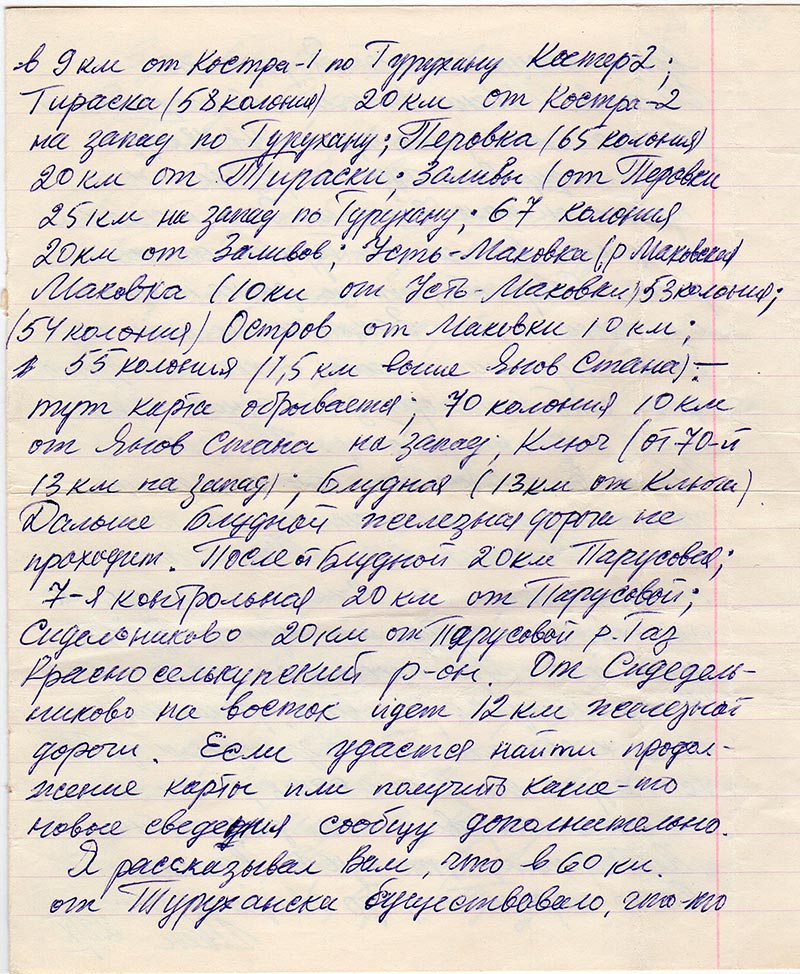 в 9 км от Костра-1 по Турухану Костер-2;
Тираска (58 колония) 20 км от Костра-2
на запад по Турухану; Перовка (65 колония)
20 км от Тираски; Заливы (от Перовки
25 км на запад по Турухану; 67 колония
20 км от Заливов; Усть-Маковка (р Маковская)
Маковка (10 км от Усть-Маковки) 53 колония;
(54 колония) Остров от Маковки 10 км;
55 колония (1,5 км выше Янов Стана) –
тут карта обрывается; 70 колония 10 км
от Янов Стана на запад; Ключ (от 70-й
13 км на запад); Блудная (13 км от Ключа)
Дальше Блудной железная дорога не
проходит. После Блудной 20 км Парусовая;
7-я контрольная 20 км от Парусовой;
Сидельниково 20 км от Парусовой р. Таз
Красноселькупский р-он. От Сидедель-
никово на восток идет 12 км железной
дороги. Если удастся найти продол-
жение карты или получить какие-то
новые сведения сообщу дополнительно.
Я рассказывал Вам, что в 60 км.
от Туруханска существовало, что-то